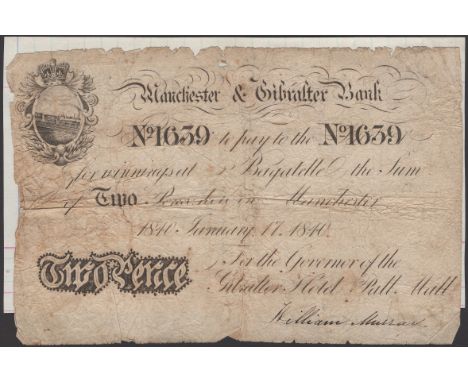 Manchester & Gibralter Bank
No1639 to pay to the No1639
for winnings at Bagatelle the Sum
of Two in Manchester
1840 January 17. 1840.
For the Governor of the
Two Pence Gibralter Hotel Pall Mall
William Murray